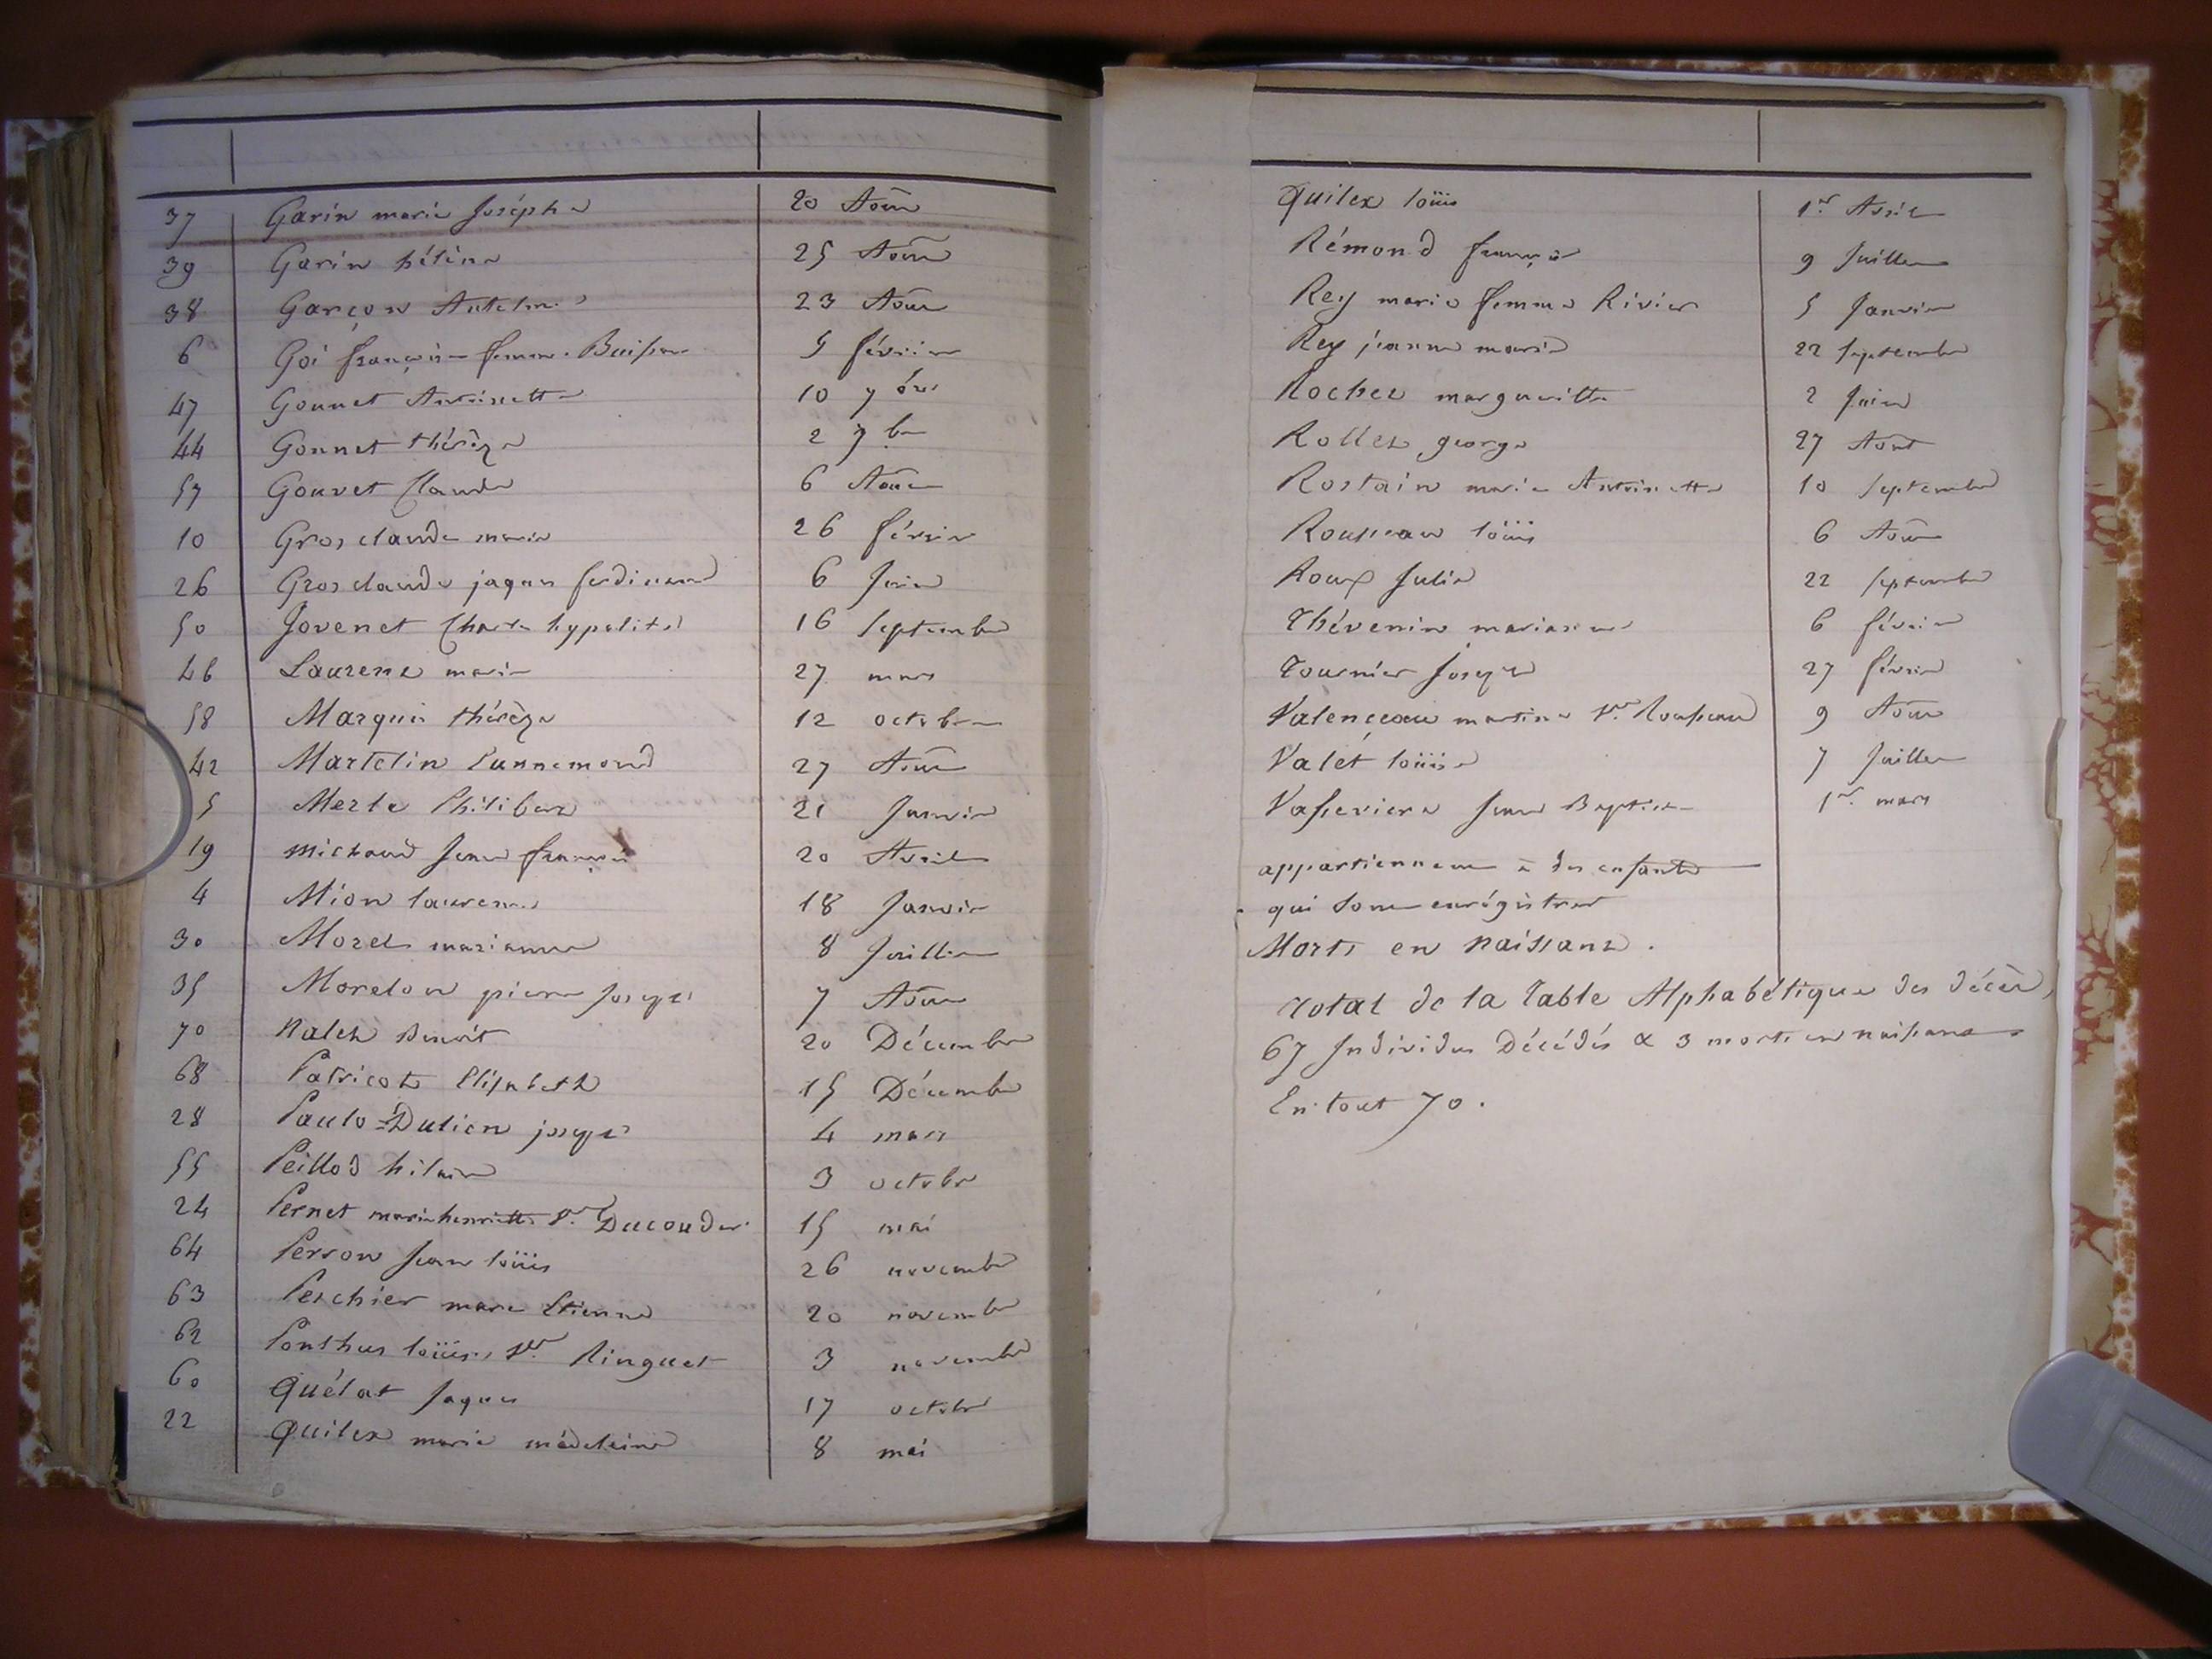 37 Garin marie Josèphe 20 Aoûst
39 Garin hélène 25 Aoûst
38 Garçon Antelme 23 Aoûst
6 Goi françoise femme Buisson 5 février
47 Gonnet Antoinette 10 7bre
44 Gonnet thérèze 2 7bre
37 Gouvet Claude 6 Aoûst
10 Grosclaude marie 26 février
26 Grosclaude jaques ferdinand 6 Juin
50 Jovenet Charle hypolite 16 Septembre
46 Laurent marie 27 mars
58 Marquis thérèze 12 octobre
42 Martelin Ennemond 27 Aoûst
5 Merle Philibert 21 Janvier
19 Michaud Jean françois 20 Avril
4 Mion laurence 18 Janvier
30 Morel marianne 8 Juillet
35 Morelon pierre Joseph 7 Aoûst
70 Nalet Benoit 20 Décembre
68 Patricot Elisabeth 15 Décembre
28 Paulo-Dulien joseph 4 mars
55 Peillod hilaire 3 octobre
24 Pernet marie henriette Ve. Ducouder 15 mai
64 Perron Jean loüis 26 novembre
63 Peschier marc Etienne 20 novembre
62 Ponthus loüise Ve. Ringuet 3 novembre
60 Quélat Jaques 17 octobre
22 Quilex marie médeleine 8 mai
Quilex loüis 1er. Avril
Rémond françois 9 Juillet
Rey marie femme Rivier 5 Janvier
Rey jeanne marie 22 Septembre
Rocher margueritte 2 Juin
Roller george 27 Aout
Rostain marie Antoinette 10 Septembre
Rousseau loüis 6 Aoûst
Roux Julie 22 Septembre
Thévenin marianne 6 février
Tournier Joseph 27 février
Valençeau martine Ve. Rousseau 9 Aoûst
Valet loüise 7 Juillet
Vasseviere Jean Baptiste 1er. mars
appartiennent à des enfants
qui sont enrégistrer
Morts en naissant.
Total de la Table Alphabétique des décès,
67 Individus Décédés & 3 morts en naissant
En tout 70.